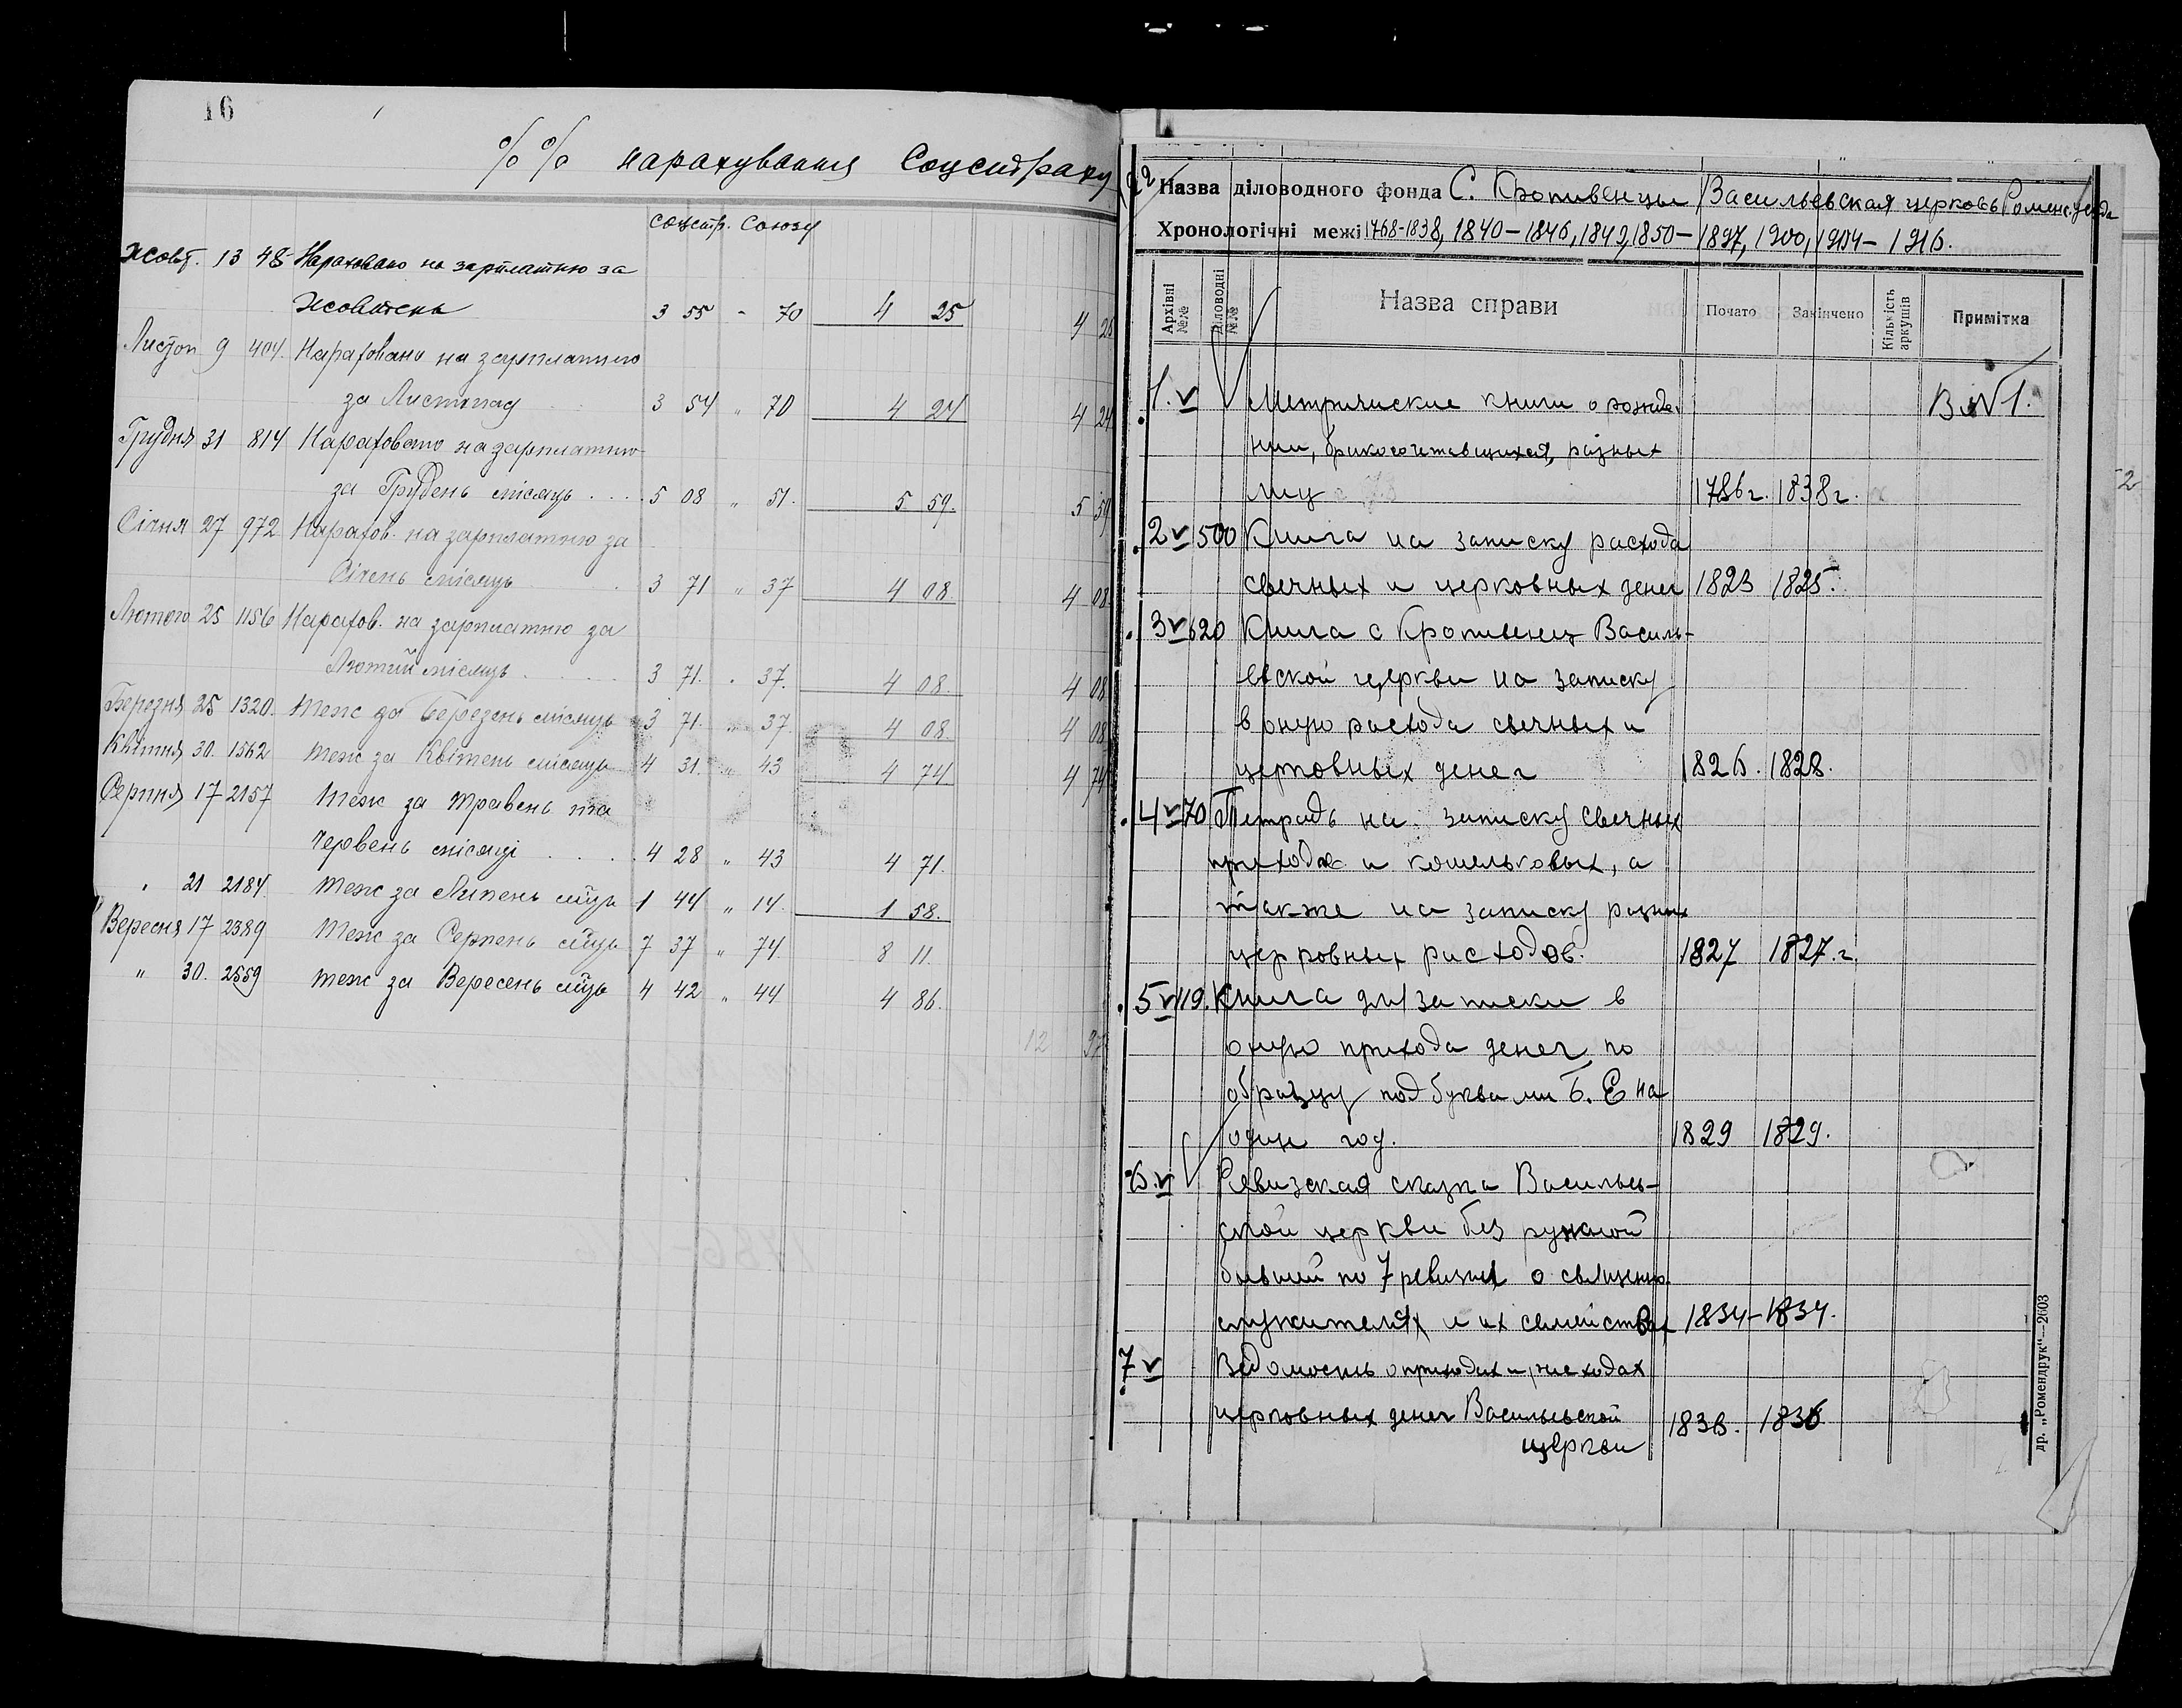 16
%% нарахування Соцстраху
Соцстр. Союзу
Жовт. 13 48 Нараховано на зарплатню за
Жовтень 3 55 " 70 4 25 4 25
Листоп 9 404. Нараховано на зарплатню
за Листопад 3 54 " 70 4 24 4 24
Грудня 31 814 Нараховано на зарплатню
за Грудень місяць . . . . 5 08 " 51. 5 59. 5 59
Січня 27 972 Нарахов. на зарплатню за
Січень місяць . 3 71 " 37 4 08. 4 08.
Лютого 25 1156 Нарахов. на зарплатню за
Лютий місяць . . . . . 3 71. " 37. 4 08. 4 08
Березня 25 1320. Теж за Березень місяць 3 71. " 37. 4 08. 4 08
Квітня 30. 1562 Теж за Квітень місяць 4 31. " 43 4 74 4 74
Серпня 17 2157 Теж за травень та
Червень місяці . . . . 4 28 " 43 4 71.
" 21 2184. Теж за Липень м-ць 1 44 " 14. 1 58.
Вересня 17 2389 Теж за Серпень м-ць 7 37 " 74. 8 11.
" 30. 2559 Теж за Вересень м-ць 4 42 " 44 4 86.
12 97
Назва діловодного фонда С. Кропивенцы Васильевская церковь Роменс. уезда
Хронологічні межі 1768-1838, 1840-1846, 1849, 1850-1897, 1900, 1904-1916.
Архівні №№ Діловодні №№ Назва справи Почато Закінчено Кількість аркушів Примітка
1. v Метрические книги о рожде- В №1.
нии, бракосочетавшихся, разных
лиц 1786 г. 1838 г.
2 v 500 Книга на записку расхода
свечных и церковных денег 1823 1825.
3 v 620 Книга с Кропивенец Василь-
евской церкви на записку
в оную расхода свечных и
церковных денег 1826. 1828.
4 v 70 Тетрадь на записку свечных
приходов и кошельковых, а
также на записку разных
церковных расходов. 1827 1827. г.
5 v 119. Книга для записки в
оную прихода денег по
образцу под буквами Б. Е на
один год. 1829 1829.
6. v Ревизская сказка Васильев-
ской церкви без ружной
бывшей по 7 ревизии о священно-
служителях и их семействах 1834-1834.
7 v Ведомость о приходах и расходах
церковных денег Васильевской
церкви 1836. 1836
др. „Ромендрук“—2603